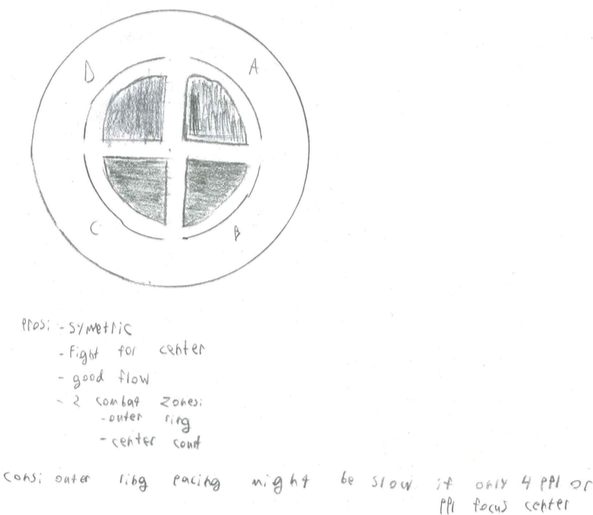 D A
C B
Pros: - Symetric
- Fight for center
- good flow
- 2 combat zones:
- outer ring
- center
cons: outer ring pacing might be slow if only 4 ppl or
ppl focus center